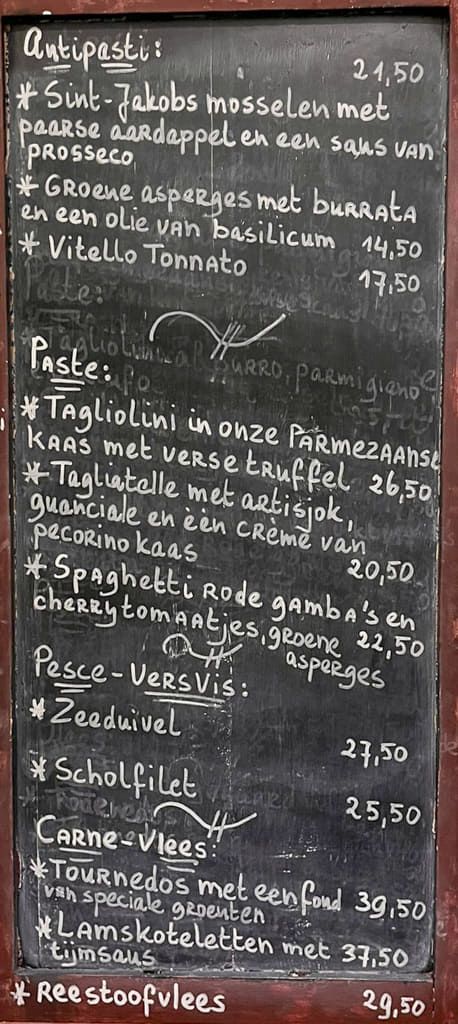 Antipasti:
21,50
* Sint-Jakobs mosselen met
paarse aardappel en een saus van
prosseco
* Groene asperges met burrata
en een olie van basilicum 14,50
* Vitello Tonnato 17,50
Paste:
Tagliolini al burro, parmigiano
Paste:
* Tagliolini in onze Parmezaanse
kaas met verse truffel 26,50
* Tagliatelle met artisjok,
guanciale en èèn crème van
pecorino kaas 20,50
* Spaghetti rode gamba's en
cherrytomaatjes, groene 22,50
asperges
Pesce-Versvis:
* Zeeduivel
27,50
* Scholfilet
25,50
Carne-Vlees:
* Tournedos met een fond 39,50
van speciale groenten
* Lamskoteletten met 37,50
tijmsaus
* Reestoofvlees 29,50